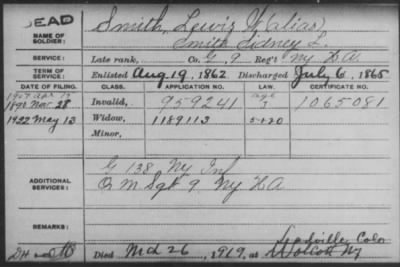 DEAD
NAME OF SOLDIER: Smith, Lewis W (alias)
Smith Sidney L.
SERVICE: Late rank, Co. G 9 Reg't Ny H A
TERM OF SERVICE: Enlisted Aug 19, 1862 Discharged July 6, 1865
DATE OF FILING. CLASS. APPLICATION NO. LAW. CERTIFICATE NO.
1907 Apr age
1890 Nov. 28 Invalid, 959241 1065081
1922 May 13 Widow, 1189113 5-1-20
Minor,
ADDITIONAL SERVICES: G 138 Ny Inf
Q M Sgt 9 Ny H A
REMARKS:
Leadville Colo
Died Mch 26, 1919, at Wolcott Ny